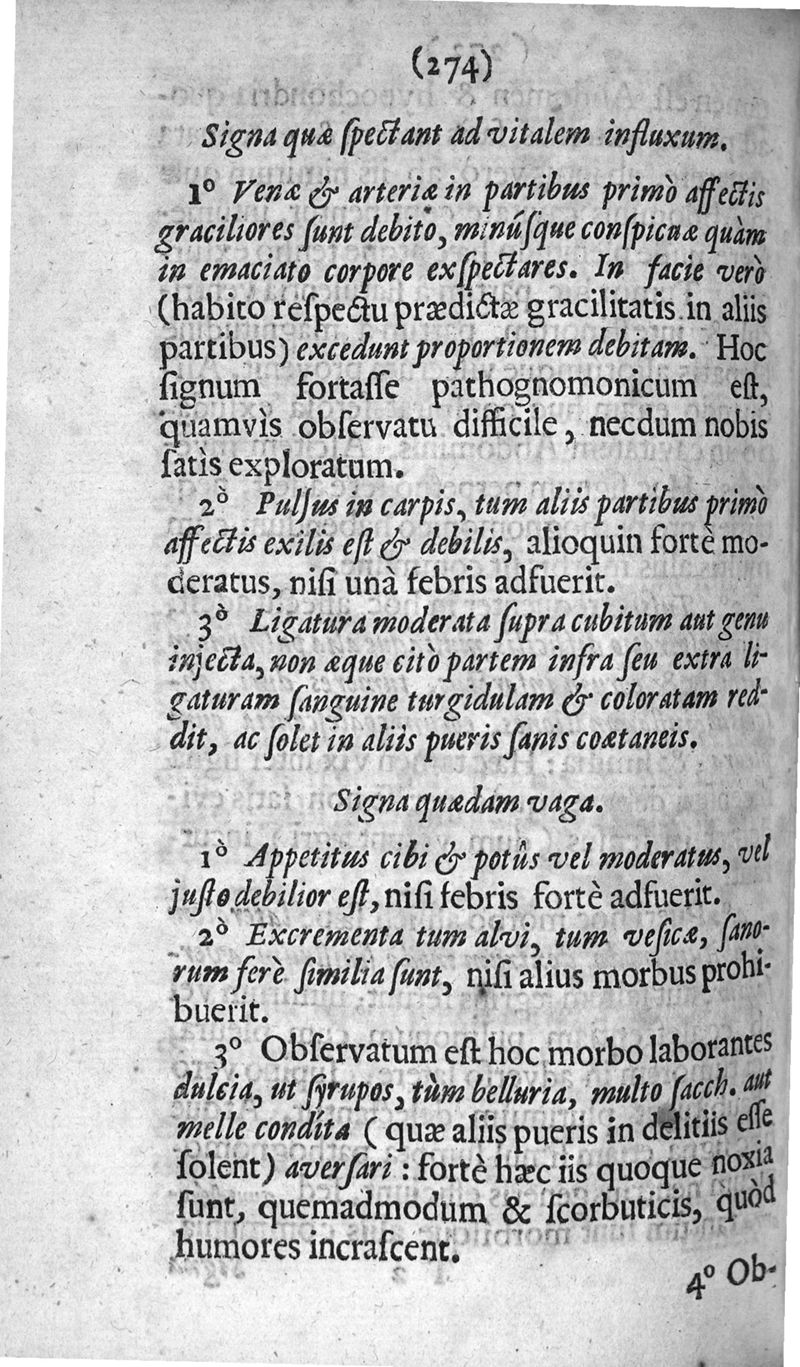 (274)
Signa quæ ſpectant ad vitalem influxum.
1º Venæ & arteriæ in partibus primò affectis
graciliores ſunt debito, minúſque conſpicuæ quàm
in emaciato corpore exſpectares. In facie verò
(habito reſpectu prædictæ gracilitatis in aliis
partibus) excedunt proportionem debitam. Hoc
ſignum fortaſſe pathognomonicum eſt,
quamvìs obſervatu difficile, necdum nobis
ſatìs exploratum.
2ò Pulſus in carpis, tum aliis partibus primò
affectis exilis eſt & debilis, alioquin fortè mo-
deratus, niſi unà febris adfuerit.
3ò Ligatura moderata ſupra cubitum aut genu
injecta, non æque citò partem infra ſeu extra li-
gaturam ſanguine turgidulam & coloratam red-
dit, ac ſolet in aliis pueris ſanis coætaneis.
Signa quædam vaga.
1ò Appetitus cibi & potûs vel moderatus, vel
juſto debilior eſt, niſi febris fortè adfuerit.
2ò Excrementa tum alvi, tum veſicæ, ſano-
rum ferè ſimilia ſunt, niſi alius morbus prohi-
buerit.
3º Obſervatum eſt hoc morbo laborantes
dulcia, ut ſyrupos, tùm belluria, multo ſacch. aut
melle condíta ( quæ aliis pueris in delitiis eſſe
ſolent) averſari : fortè hæc iis quoque noxia
ſunt, quemadmodum & ſcorbuticis, quòd
humores incraſcent.
4º Ob-